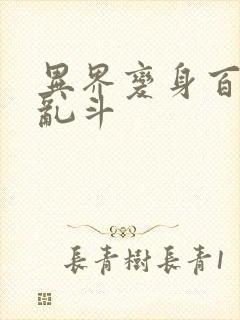 異界變身百
亂斗
長青樹長青1